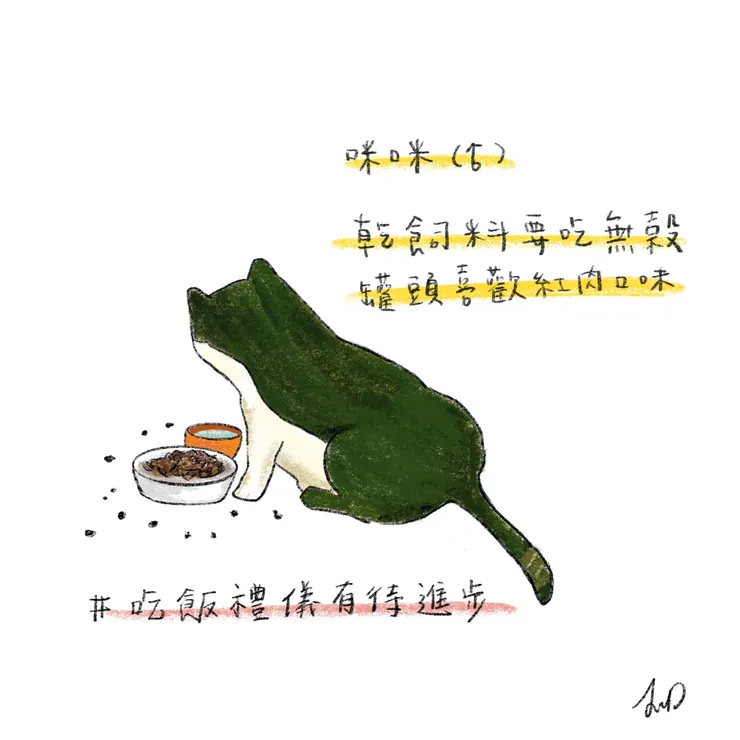 咪咪（ㄎ）
乾飼料要吃無穀
罐頭喜歡紅肉口味
#吃飯禮儀有待進步